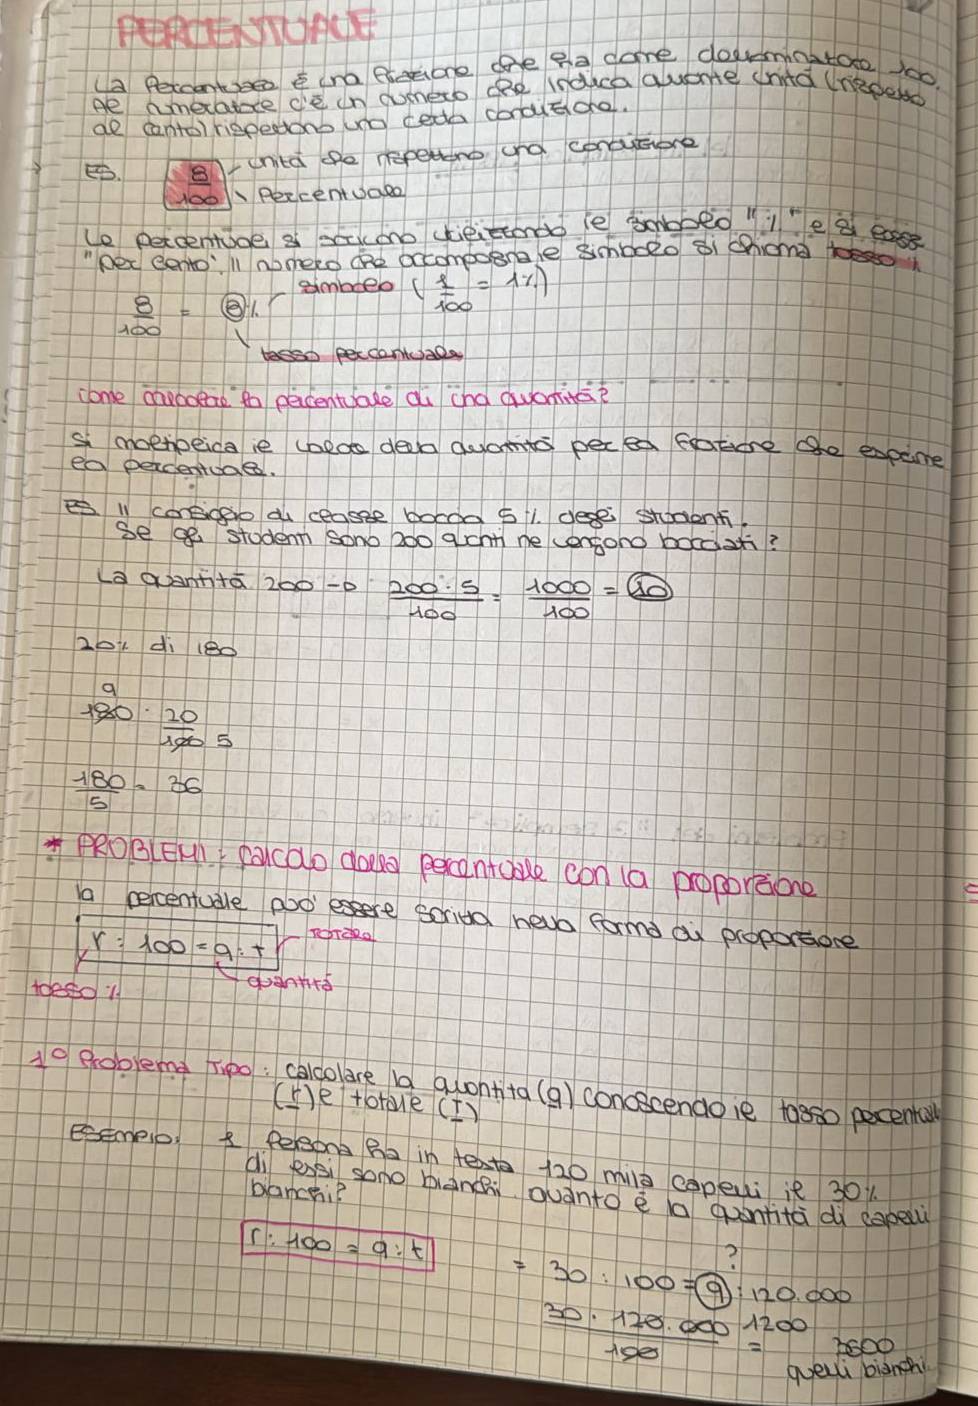 PERCENTUALE
La Percentuale è una frazione che ha come denominatore 100.
Al numeratore c'è un numero che indica quante unità (rispetto
al cento) rispettano una certa condizione.
ES. 8/100 unità che rispettano una condizione
Percentuale
Le percentuali si scrivono utilizzando il simbolo "%" e si legge
"per cento". Il numero che accompagna il simbolo si chiama tasso %
8/100 = 8% simbolo (1/100 = 1%)
tasso percentuale
come calcolare la percentuale di una quantità?
Si moltiplica il valore della quantità per la frazione che esprime
la percentuale.
es Il consiglio di classe boccia 5% degli studenti.
Se gli studenti sono 200 quanti ne vengono bocciati?
La quantità 200 → 200·5/100 = 1000/100 = 10
20% di 180
9
180 · 20/100 5
180/5 = 36
* PROBLEMI: calcolo della percentuale con la proporzione
la percentuale può essere scritta nella forma di proporzione
r : 100 = q : t TOTALE
quantità
tasso %
1° Problema Tipo: calcolare la quantità (q) conoscendo il tasso percentual
(r) e totale (T)
Esempio: 1 Persona ha in testa 120 mila capelli il 30%
di essi sono bianchi. Quanto è la quantità di capelli
bianchi?
r : 100 = q : t
?
= 30 : 100 = q : 120.000
30 · 120.000 1200
100 = 3600
quelli bianchi